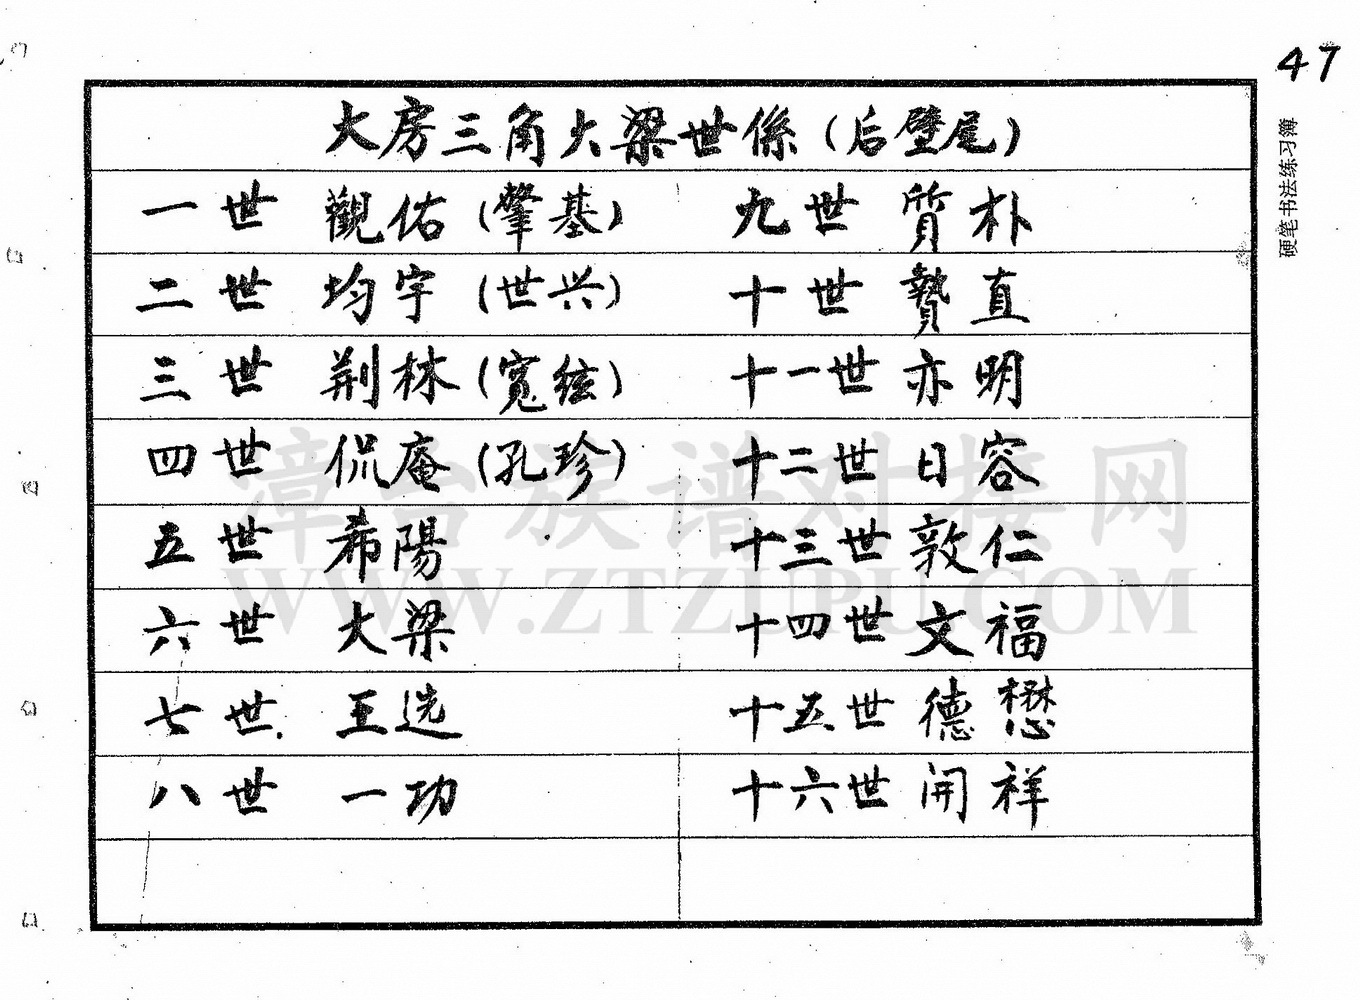 47
硬笔书法练习簿
大房三角大梁世係（后壁尾）
一世 觀佑（肇基）
二世 均宇（世兴）
三世 荆林（寬絃）
四世 侃庵（孔珍）
五世 希陽
六世 大梁
七世 王选
八世 一功
九世 質朴
十世 贄直
十一世 亦明
十二世 日容
十三世 敦仁
十四世 文福
十五世 德懋
十六世 開祥
漳台族谱对接网
WWW.ZTZUPU.COM